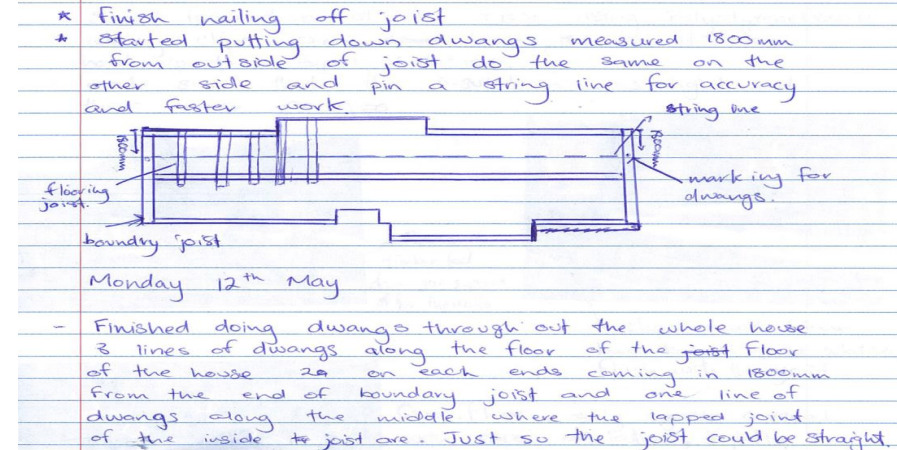 * Finish nailing off joist
* started putting down dwangs measured 1800mm
from outside of joist do the same on the
other side and pin a string line for accuracy
and faster work.
string line
1800mm
1800mm
flooring
joist.
marking for
dwangs.
boundry joist
Monday 12th May
- Finished doing dwangs through out the whole house
3 lines of dwangs along the floor of the joist Floor
of the house 2 on each ends coming in 1800mm
From the end of boundary joist and one line of
dwangs along the middle where the lapped joint
of the inside joist are. Just so the joist could be straight.